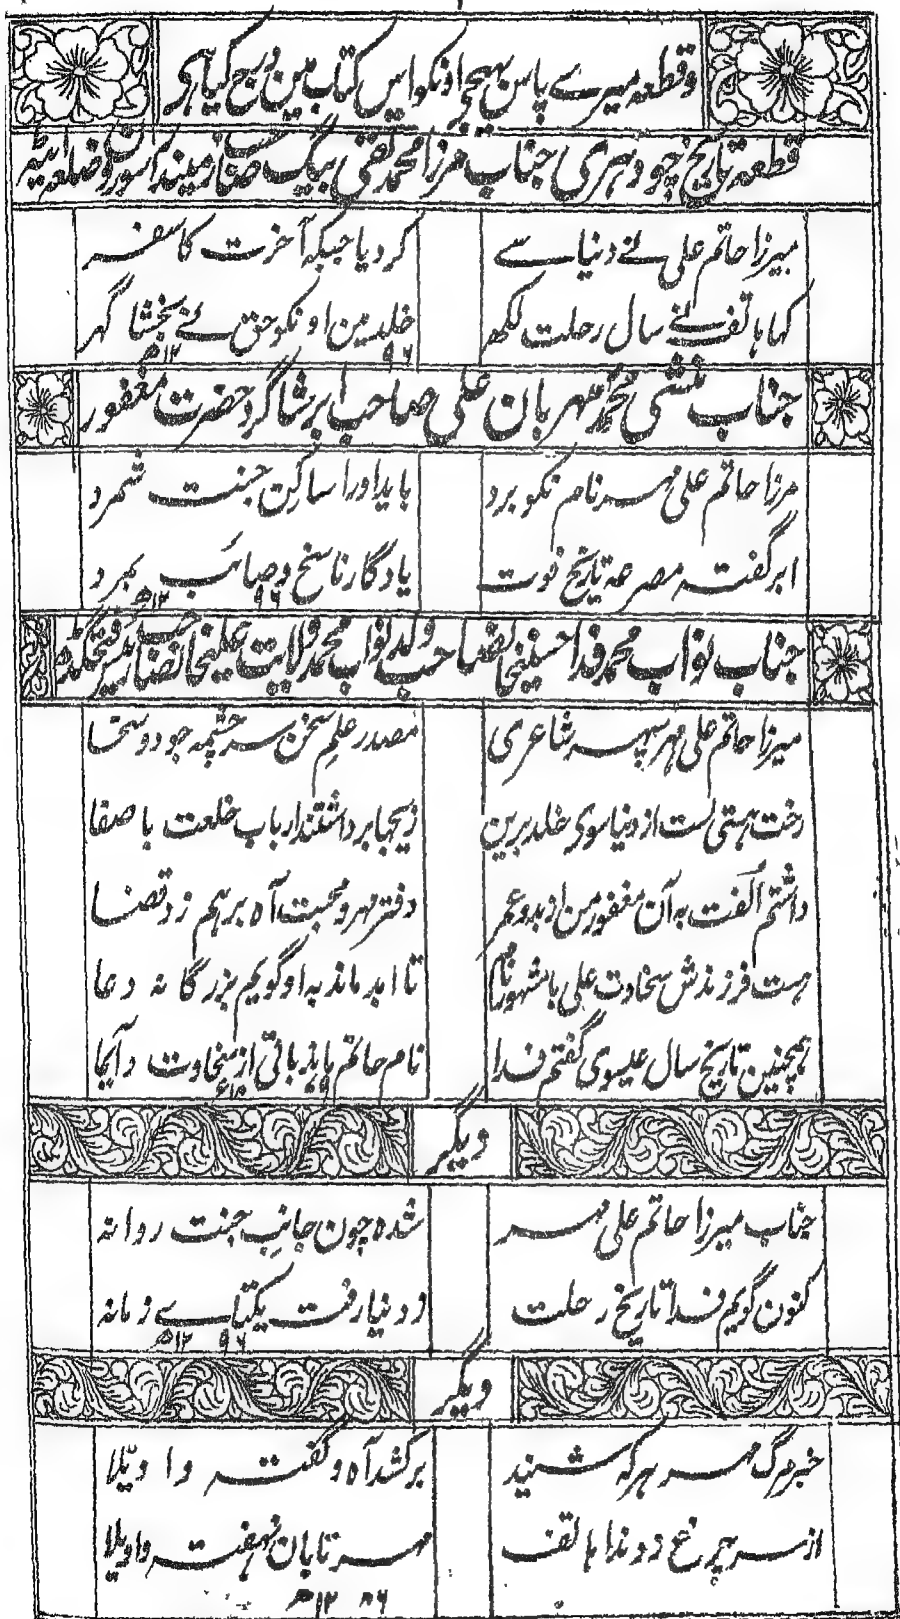 و قطعہ میرے پاس بھیجے اونکو اس کتاب مین درج کیا ہی
قطعہ تاریخ چودہری جناب مرزا محمد تقی بیگ صاحب زمیندار سورون ضلع ایٹہ
میرزا حاتم علی نے دنیا سے
کر دیا جبکہ آخرت کا سفر
کہا ہاتف نے سال رحلت لکھ
خلد مین اونکو حق نے بخشا گہر
۱۲۹۶ھ
جناب منشی محمد مہربان علی صاحب ابر شاگرد حضرت مغفور
مرزا حاتم علی مہر نام نکو برد
باید اورا ساکن جنت شمرد
ابر گفت مصرعہ تاریخ فوت
یادگار ناسخ و صائب بمرد
۱۲۹۶ھ
جناب نواب محمد فدا حسینخانصاحب ولد نواب محمد ولایت علیخانصاحب
میرزا حاتم علی مہر سپہر شاعری
مصدر علم سخن سرچشمہ جود و سخا
رخت ہستی بست از دنیا سوی خلد برین
برداشتند ارباب خلعت با صفا
داشتم الفت بہ آن مغفور من از بدو عمر
دفتر مہر و محبت آہ برہم زد قضا
ہست فرزندش سخاوت علی با مشہور نام
تا ابد ماند بہ او گویم بزرگانہ دعا
ہمچنین تاریخ سال عیسوی گفتم فدا
نام حاتم باد باقی از سخاوت دآیما
دیگر
جناب میرزا حاتم علی مہر
شدہ چون جانب جنت روانہ
کنون گویم فدا تاریخ رحلت
ز دنیا رفت یکتاے زمانہ
۱۲۹۶ھ
دیگر
خبر مرگ مہر ہر کہ شنید
برکشد آہ و گفت وا ویلا
از سر چرخ زد ندا ہاتف
مہر تابان نہفت واویلا
۱۲۹۶ھ